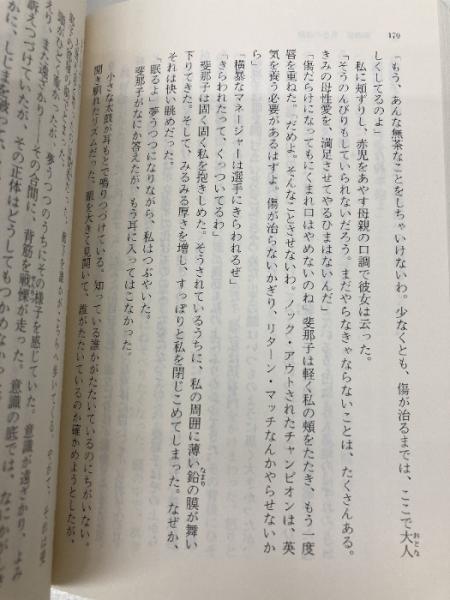 170
「もう、あんな無茶なことをしちゃいけないわ。少なくとも、傷が治るまでは、ここで大人
おとな
しくしてるのよ」
私に頰ずりし、赤児をあやす母親の口調で彼女は云った。
「そうのんびりもしていられないだろう。まだやらなきゃならないことは、たくさんある。
きみの母性愛を、満足させてやるひまはないんだ」
「傷だらけになってもにくまれ口はやめないのね」斐那子は軽く私の頰をたたき、もう一度
唇を重ねた。「だめよ。そんなことさせないわ。ノック・アウトされたチャンピオンは、英
気を養う必要があるはずよ。傷が治らないかぎり、リターン・マッチなんかやらせないか
ら」
「横暴なマネージャーは選手にきらわれるぜ」
「きらわれたって、くっついてるわ」
斐那子は固く固く私を抱きしめた。そうされているうちに、私の周囲に薄い鉛の膜が舞い
なまり
下りてきた。そして、みるみる厚さを増し、すっぽりと私を閉じこめてしまった。なぜか、
それは快い眺めだった。
「眠るよ」夢うつつになりながら、私はつぶやいた。
斐那子がなにか答えたが、もう耳に入ってはこなかった。
小さな太鼓が耳もとで鳴りつづけている。知っている誰かがたたいているのにちがいない。
聞き馴れたリズムだった。眼を大きく見開いて、誰がたたいているのか確かめようとしたが、
夢うつつのうちにその様子を感じていた。意識が遠ざかり、よみ
その合間に、背筋を戦慄が走った。意識の底では、なにかがしき
訴えつづけていたが、その正体はどうしてもつかめなかった